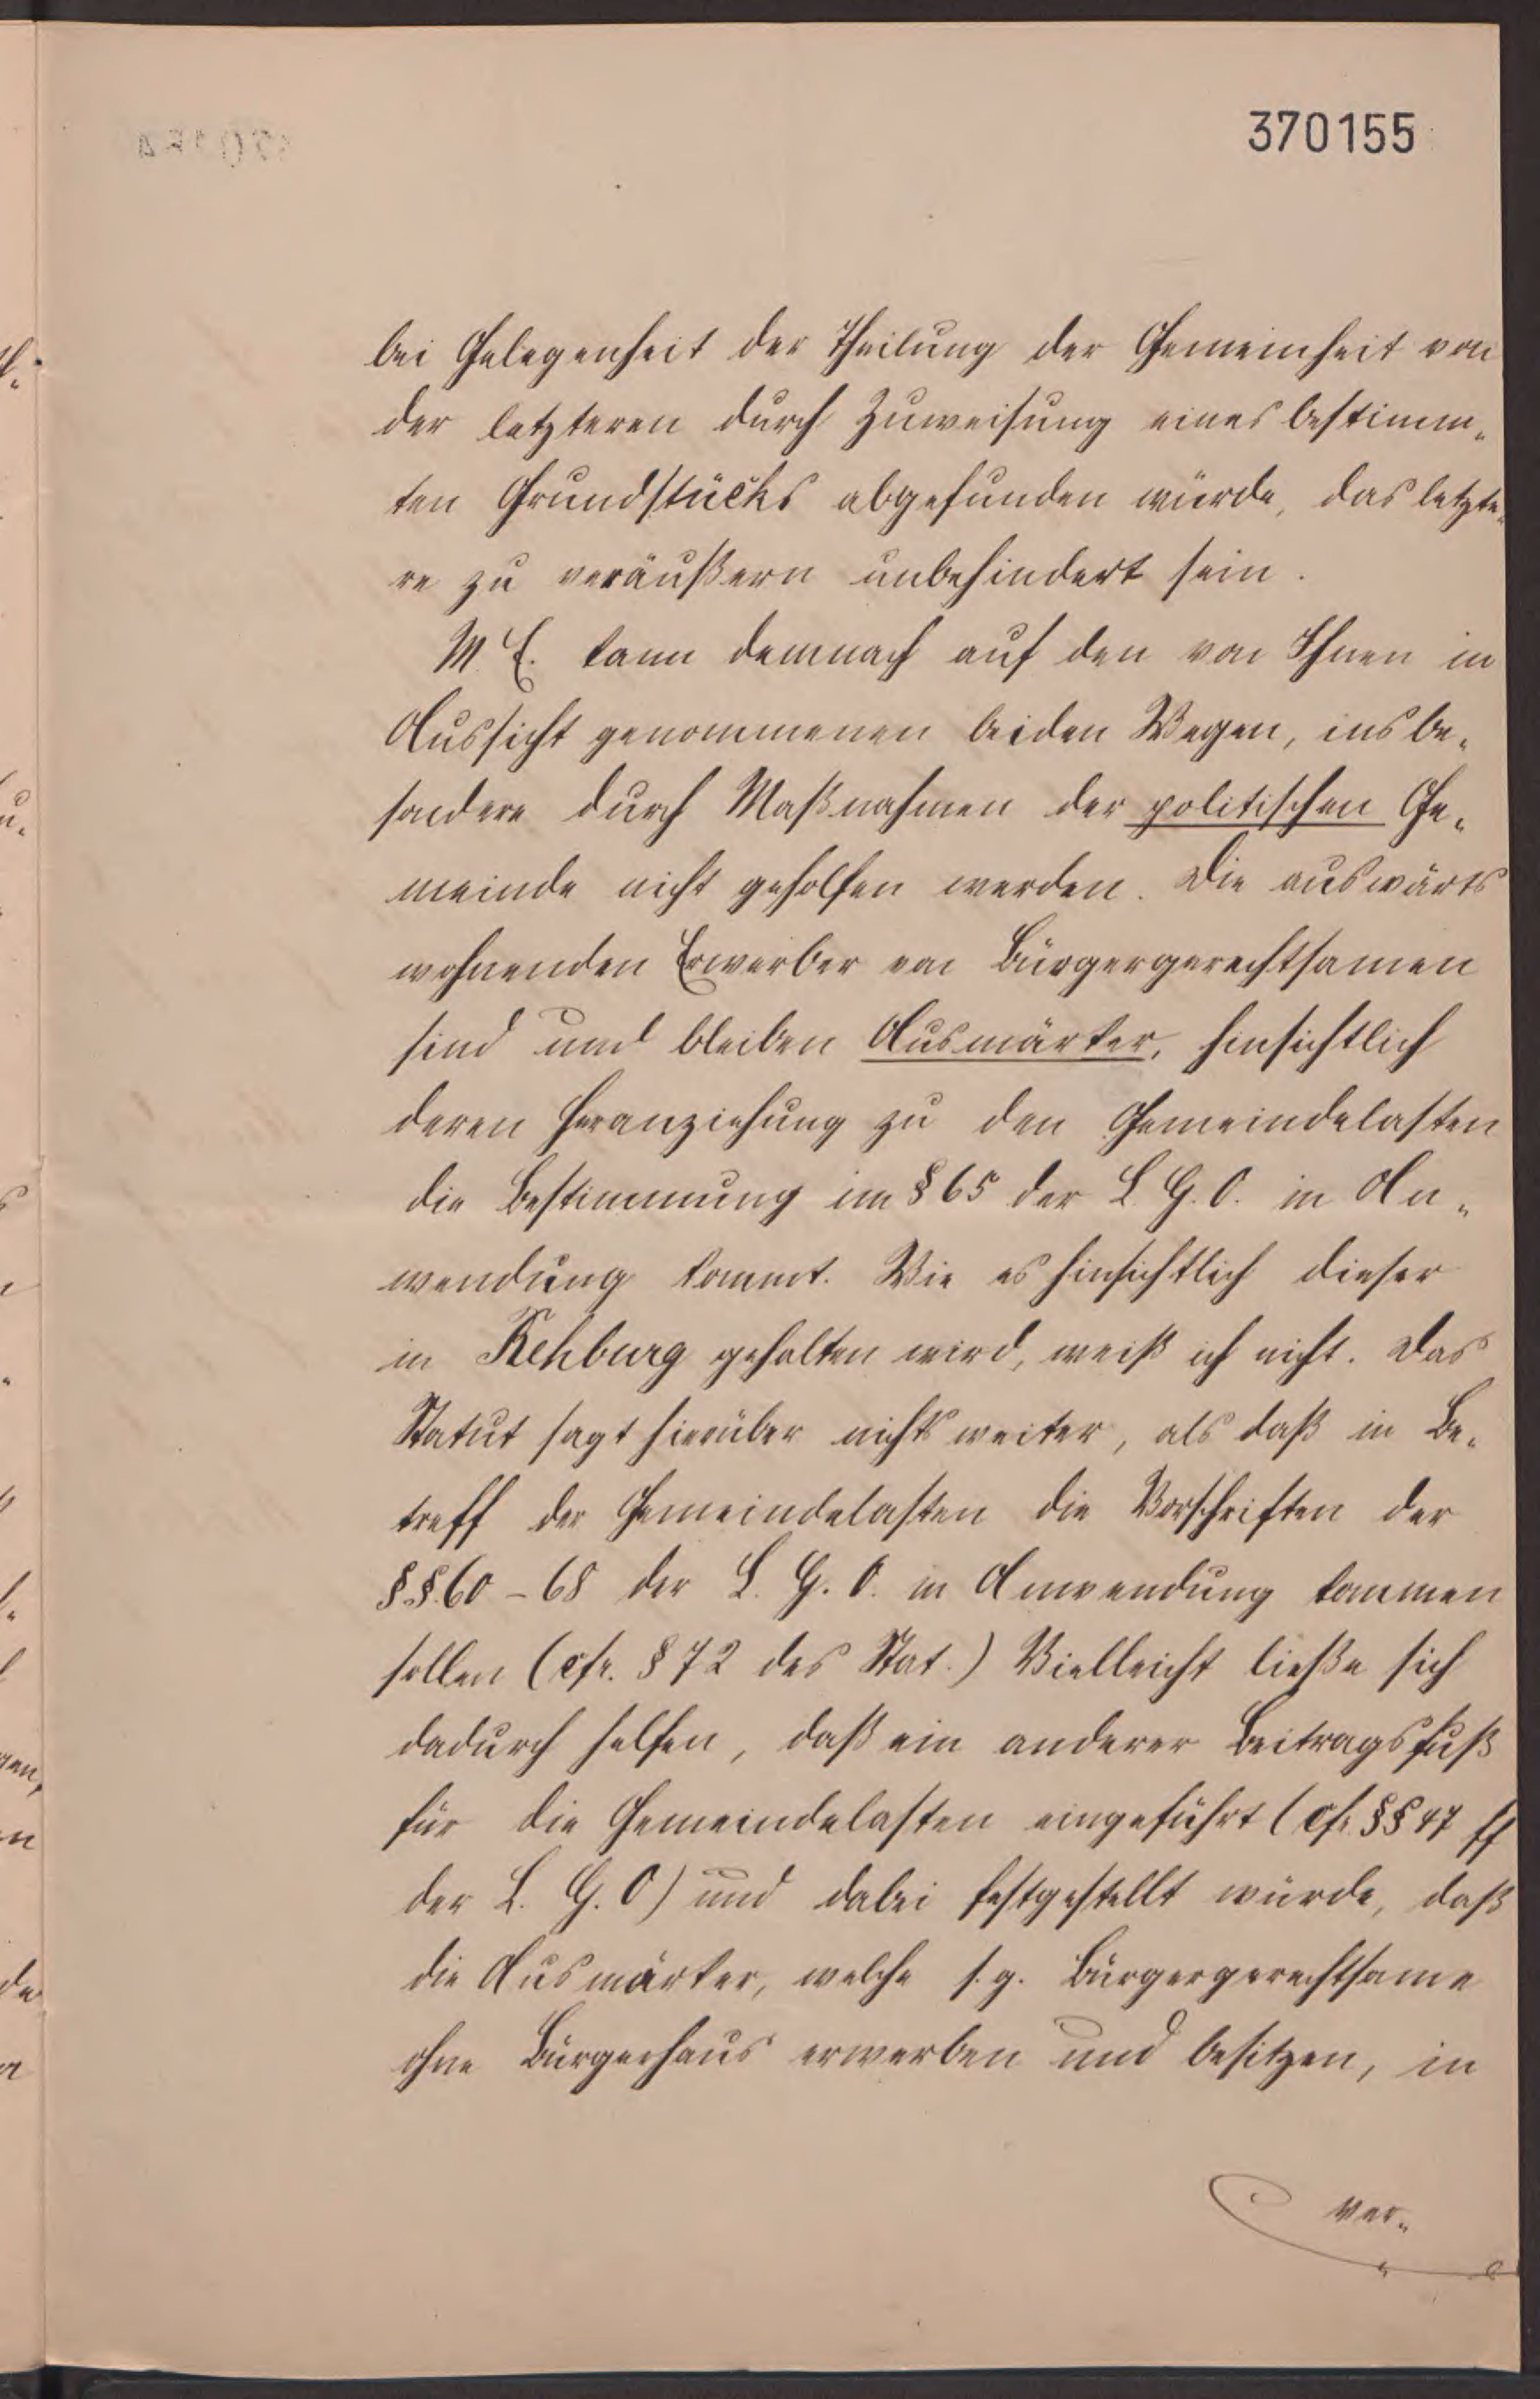 370155
bei Gelegenheit der Theilung der Gemeinheit von
der letzteren durch Zuweisung eines bestimm-
ten Grundstücks abgefunden würde, das letzte-
re zu veräußern unbehindert sein.
M. E. kann demnach auf den von Ihnen in
Aussicht genommenen beiden Wegen, insbe-
sondere durch Maßnahmen der politischen Ge-
meinde nicht geholfen werden. Die auswärts
wohnenden Erwerber von Bürgergerechtsamen
sind und bleiben Ausmärker, hinsichtlich
deren Heranziehung zu den Gemeindelasten
die Bestimmung im § 65 der L. G. O. in An-
wendung kommt. Wie es hinsichtlich dieser
in Rehburg gehalten wird, weiß ich nicht. Das
Statut sagt hierüber nichts weiter, als daß in Be-
treff der Gemeindelasten die Vorschriften der
§§. 60 - 68 der L. G. O. in Anwendung kommen
sollen (cfr. § 72 des Stat.) Vielleicht ließe sich
dadurch helfen, daß ein anderer Beitragsfuß
für die Gemeindelasten eingeführt (cfr. §§ 47 ff
der L. G. O) und dabei festgestellt würde, daß
die Ausmärker, welche s. g. Bürgergerechtsame
ohne Bürgerhaus erwerben und besitzen, in
ver-